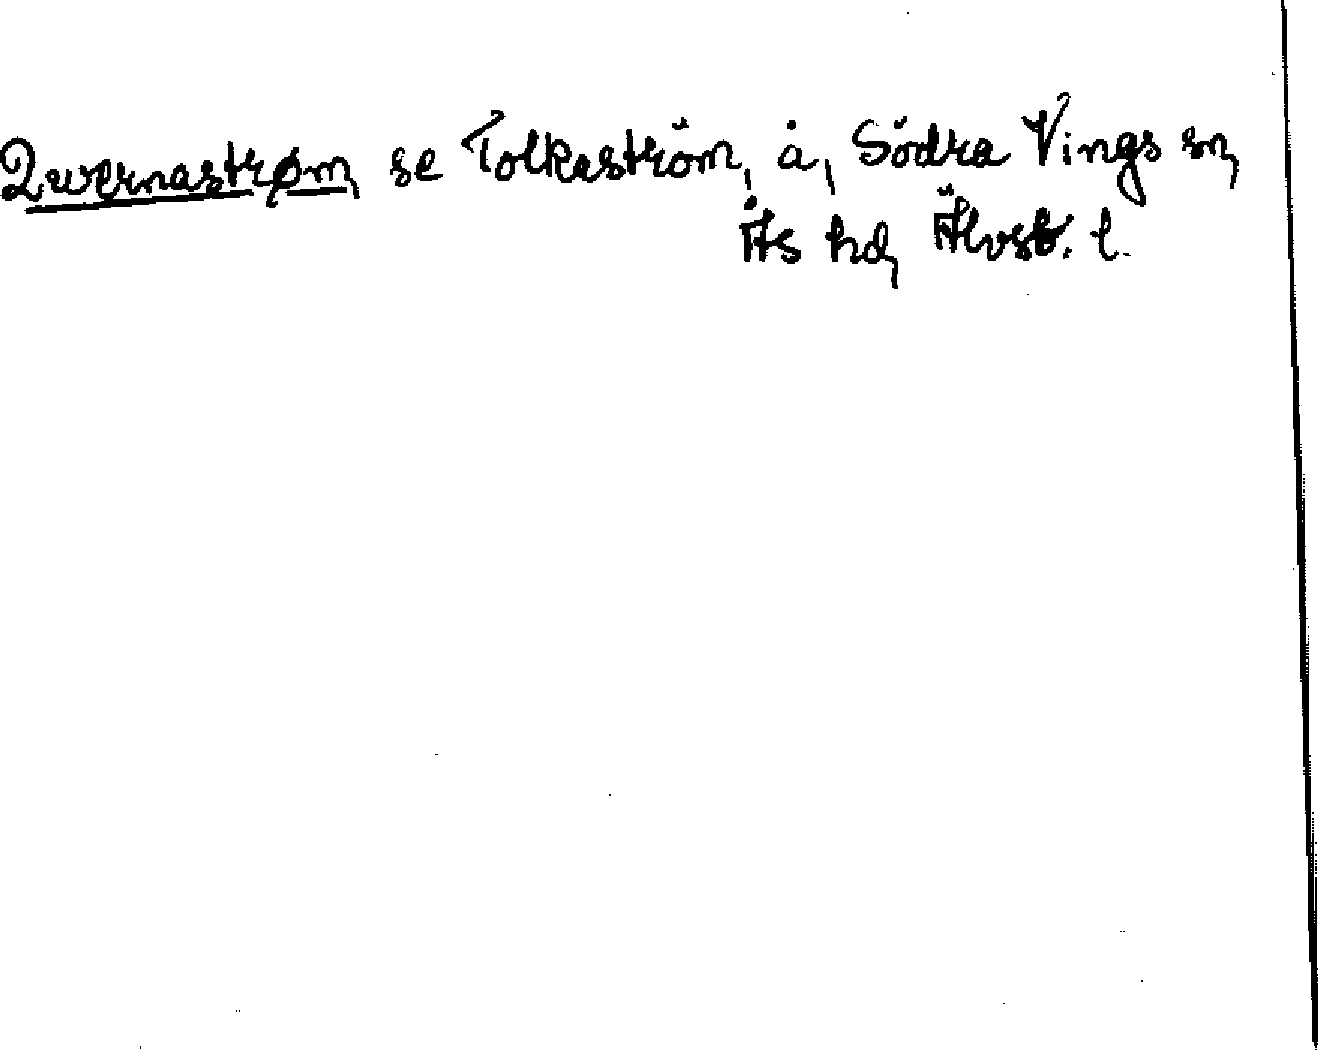 Qwernastrøm, se Tolkeström, å, Södra Vings sn,
Ås hd, Älvsb. l.